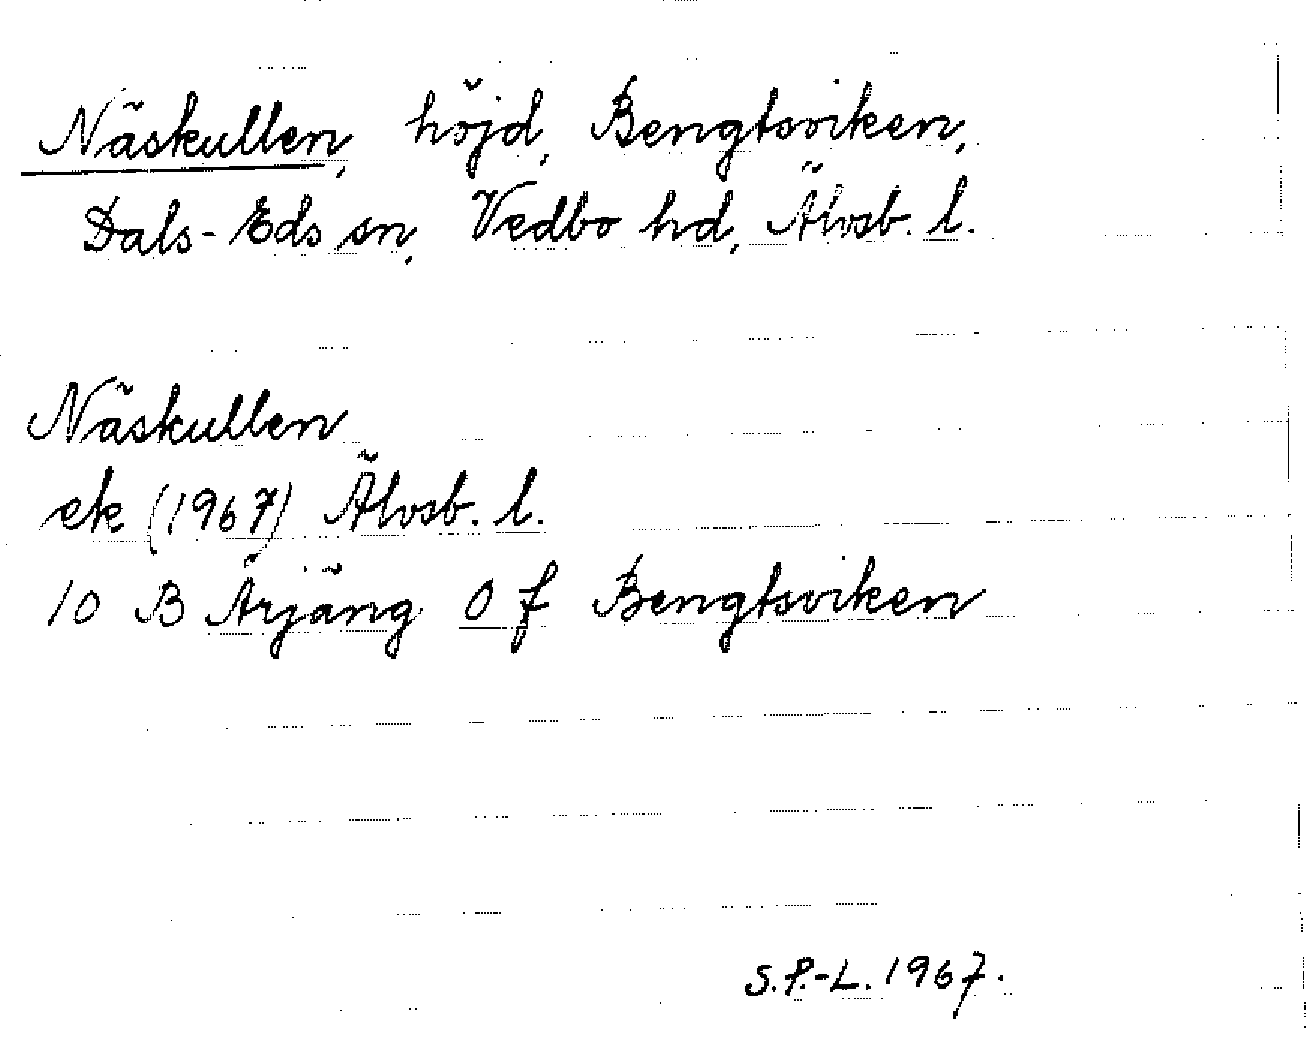 Näskullen, höjd, Bengtsviken,
Dals-Eds sn, Vedbo hd, Älvsb. l.
Näskullen
ek (1967) Älvsb. l.
10 B Årjäng 0 f Bengtsviken
S.P.-L. 1967.